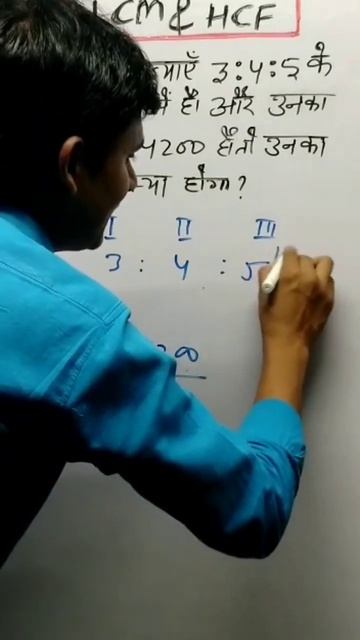 LCM & HCF
3:4:5 के
में है। और उनका
4200 है तो उनका
क्या होगा?
I II III
3 : 4 : 5
200